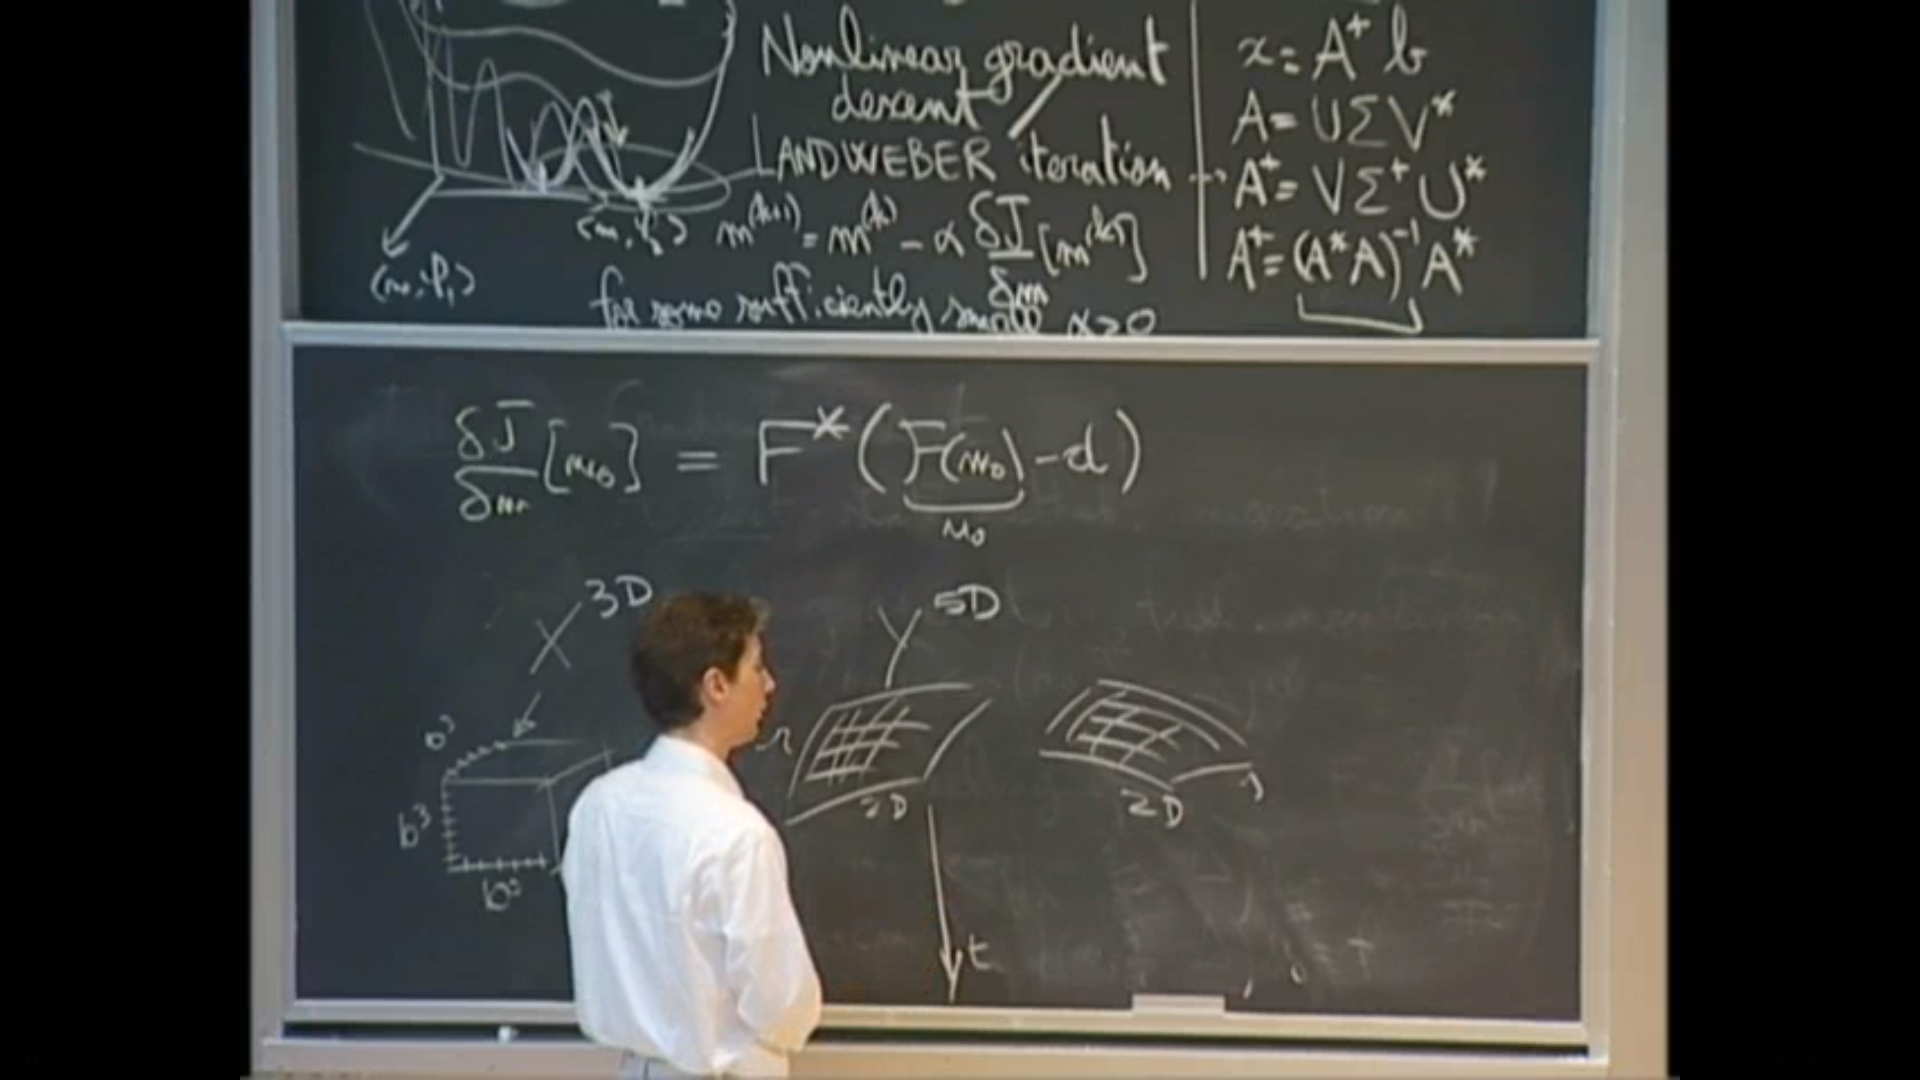 Nonlinear gradient
descent
LANDWEBER iteration
m^(k+1) = m^(k) - α δJ/δm [m^(k)]
for some sufficiently small α > 0
x = A⁺ b
A = U Σ V*
A⁺ = V Σ⁺ U*
A⁺ = (A* A)⁻¹ A*
δJ/δm [m₀] = F* (F(m₀) - d)
u₀
X 3D
Y 5D
r
2D
2D
t